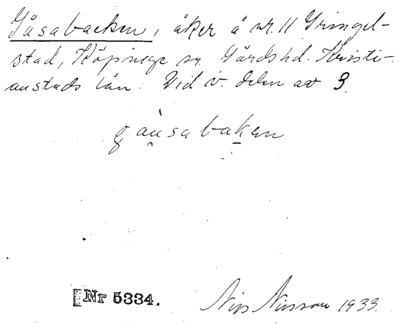 Gåsabacken, åker å nr. 11 Gringel-
stad, Köpinge sn Gärds hd. Kristi-
anstads län. Vid v. delen av 3.
gåusabaken
Nr 5334.
Nils Nilsson 1933.